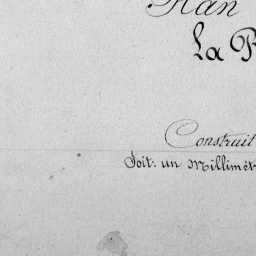 Plan
La P
Construit
Soit: un Millimèt